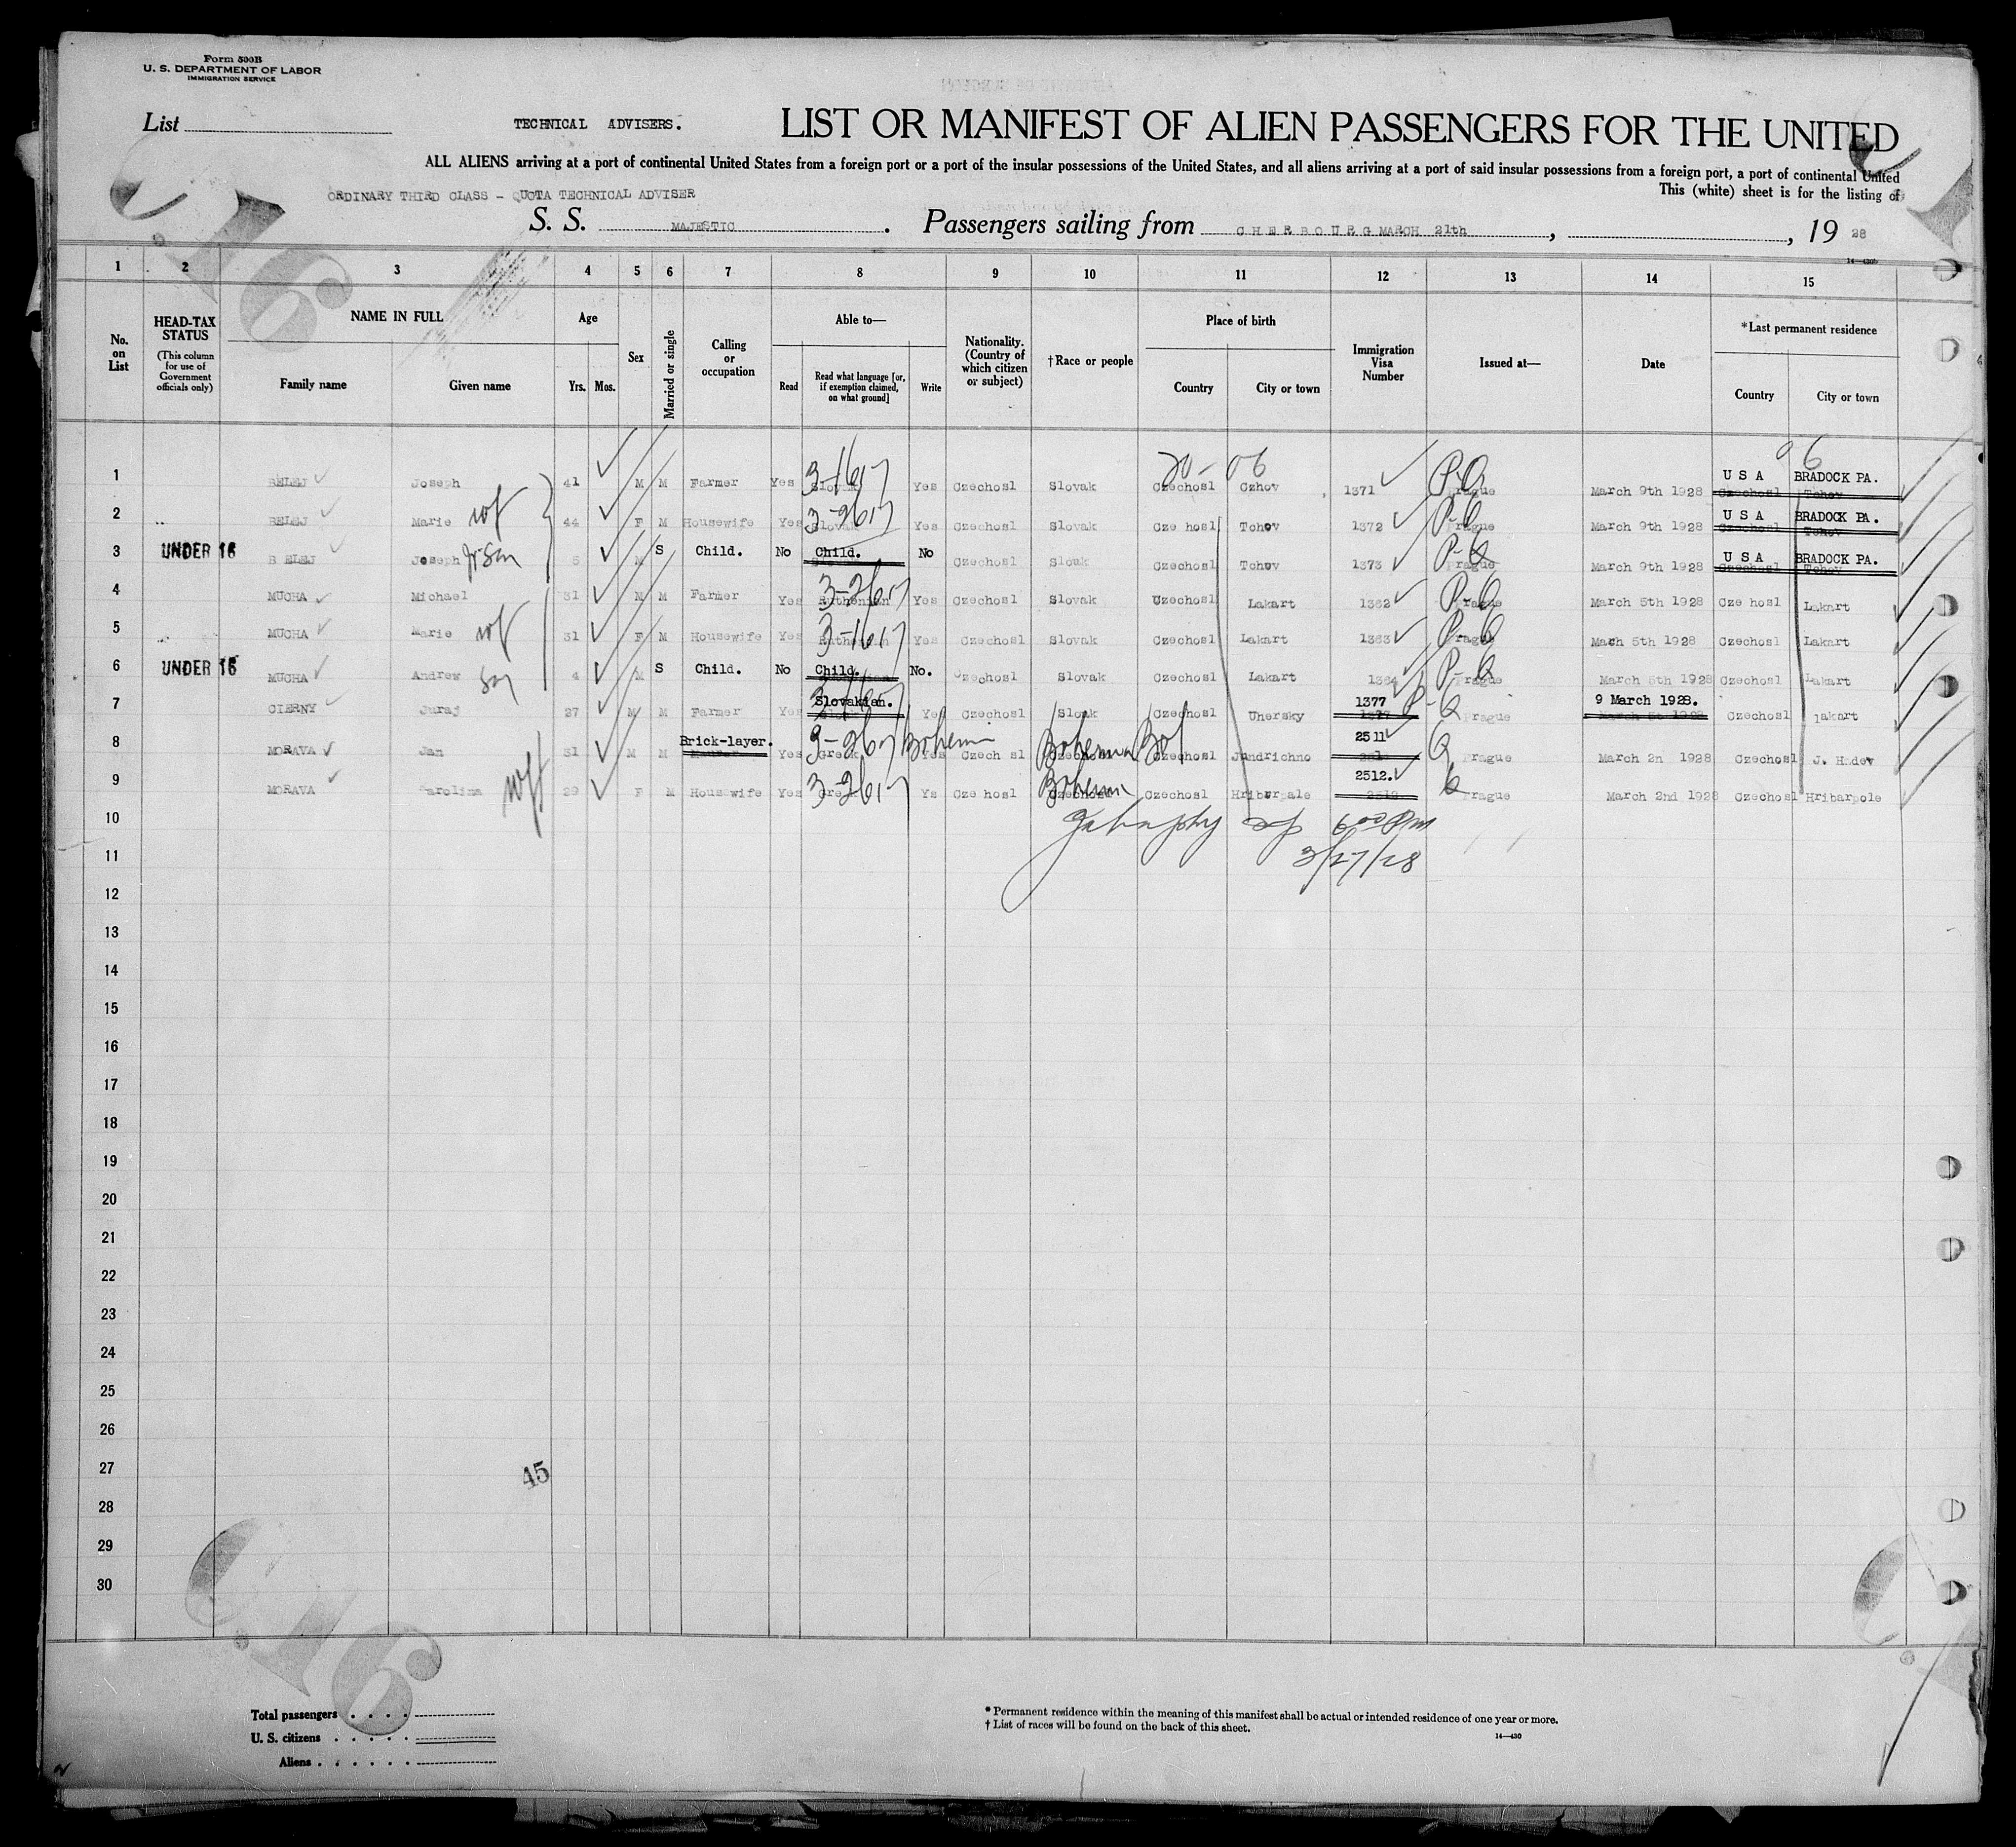 Form 500B
U. S. DEPARTMENT OF LABOR
IMMIGRATION SERVICE
List
TECHNICAL ADVISERS.
LIST OR MANIFEST OF ALIEN PASSENGERS FOR THE UNITED
ALL ALIENS arriving at a port of continental United States from a foreign port or a port of the insular possessions of the United States, and all aliens arriving at a port of said insular possessions from a foreign port, a port of continental United
This (white) sheet is for the listing of
ORDINARY THIRD CLASS - QUOTA TECHNICAL ADVISER
S. S. MAJESTIC. Passengers sailing from CHERBOURG MARCH 21th, , 19 28
14—430b
1 2 3 4 5 6 7 8 9 10 11 12 13 14 15
No. on List
HEAD-TAX STATUS
(This column for use of Government officials only)
NAME IN FULL
Family name Given name
Age
Yrs. Mos.
Sex
Married or single
Calling or occupation
Able to—
Read Read what language [or, if exemption claimed, on what ground] Write
Nationality. (Country of which citizen or subject)
†Race or people
Place of birth
Country City or town
Immigration Visa Number
Issued at—
Date
*Last permanent residence
Country City or town
20-06 96
1 BELEJ Joseph 41 M M Farmer Yes Slovak 3-1617 Yes Czechosl Slovak Czechosl Czhov 1371 P-Q Prague March 9th 1928 U S A BRADOCK PA. Czechosl Tchov
2 BELEJ Marie wf 44 F M Housewife Yes Slovak 3-2617 Yes Czechosl Slovak Cze hosl Tchov 1372 P-Q Prague March 9th 1928 U S A BRADOCK PA. Czechosl Tchov
3 UNDER 16 B ELEJ Joseph Jr Son 5 M S Child. No Child. No Czechosl Slouk Czechosl Tchov 1373 P-Q Prague March 9th 1928 U S A BRADOCK PA. Czechosl Tchov
4 MUCHA Michael 31 M M Farmer Yes Ruthenian 3-2617 Yes Czechosl Slovak Czechosl Lakart 1362 P-Q Prague March 5th 1928 Cze hosl Lakart
5 MUCHA Marie wf 31 F M Housewife Yes Ruthenian 3-1617 Yes Czechosl Slovak Czechosl Lakart 1363 P-Q Prague Mach 5th 1928 Czechosl Lakart
6 UNDER 16 MUCHA Andrew Son 4 M S Child. No Child. No. Czechosl Slovak Czechosl Lakart 1364 P-Q Prague March 5th 1928 Czechosl Lakart
7 CIERNY Juraj 27 M M Farmer Yes Slovakian. Yes Czechosl Slovak Czechosl Uhersky 1377 P-Q Prague 9 March 1928. Czechosl Lakart
8 MORAVA Jan 31 M M Brick-layer. Yes Greek 3-2617 Bohemn Yes Czech sl Bohemn Boh Czechosl Jundrichno 2511 Q Prague March 2n 1928 Czechosl J. Hadev
9 MORAVA Karolina wf 29 F M Housewife Yes Greek 3-2617 Ys Cze hosl Bohemn Czechosl Hriborpale 2512. Q Prague March 2nd 1928 Czechosl Hribarpole
10 6 00 Pm
11 3/27/28
12
13
14
15
16
17
18
19
20
21
22
23
24
25
26
27
45
28
29
30
C.16
Total passengers
U. S. citizens
Aliens
* Permanent residence within the meaning of this manifest shall be actual or intended residence of one year or more.
† List of races will be found on the back of this sheet.
14—430